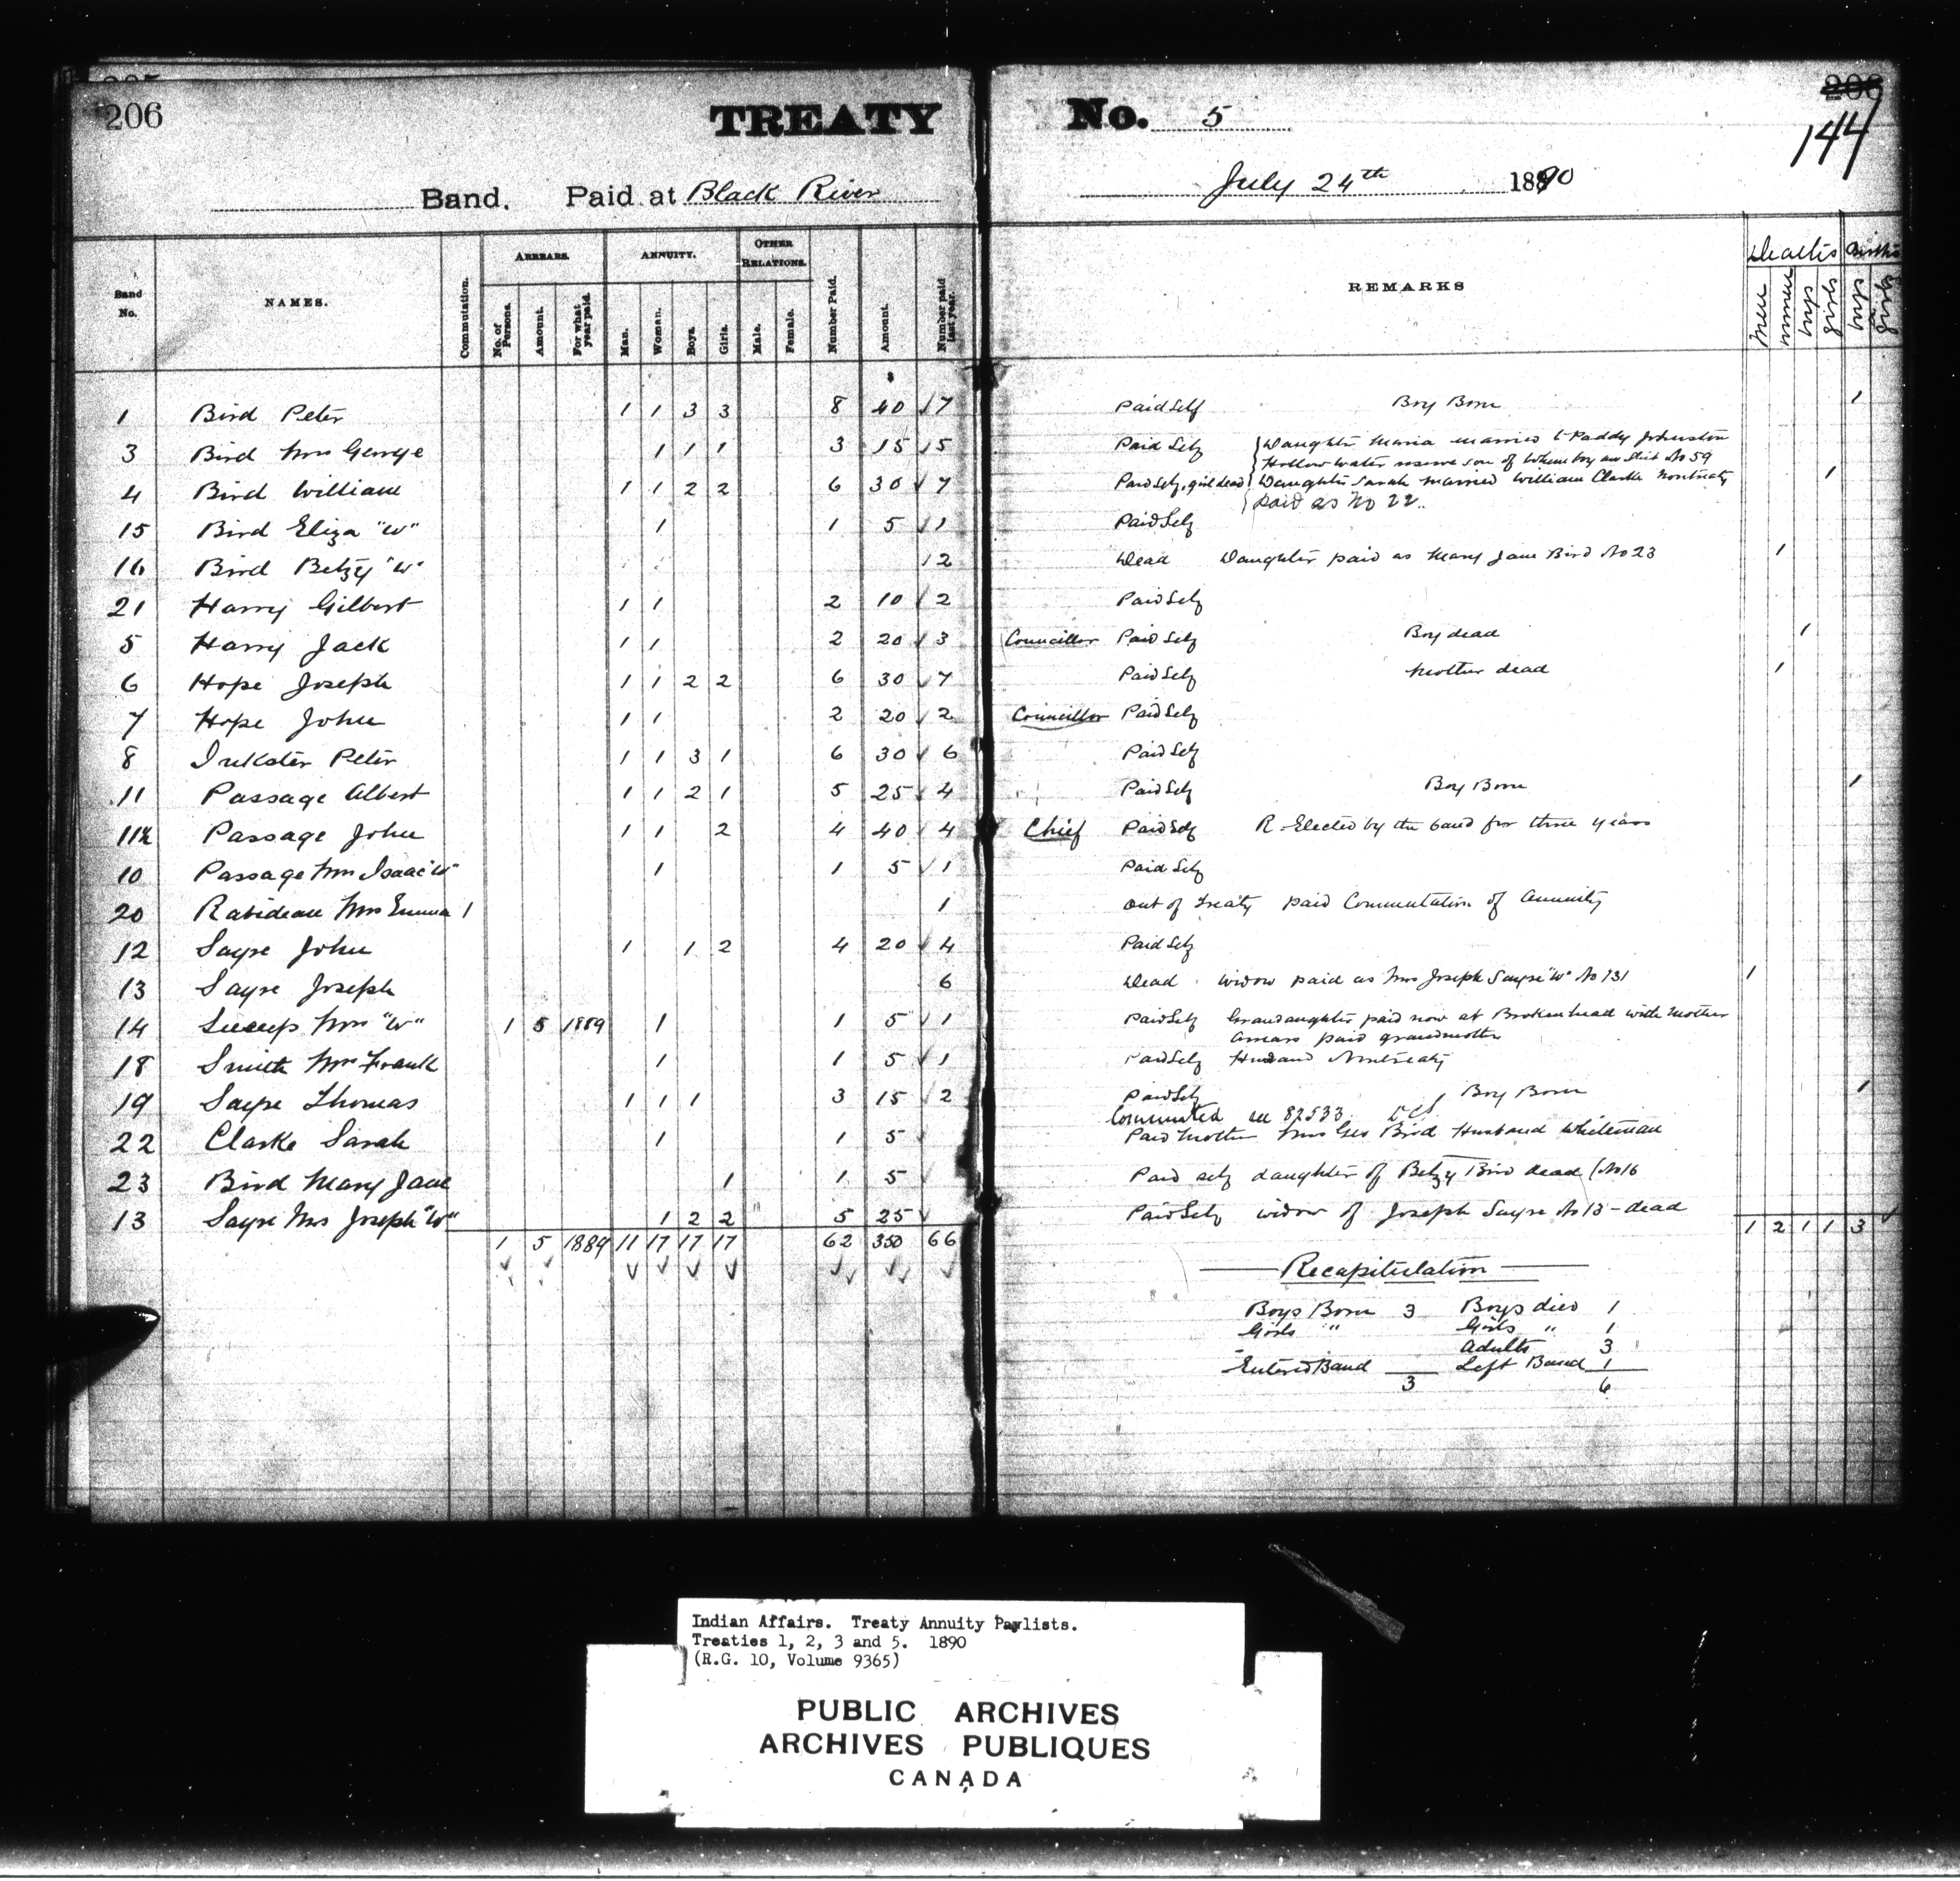 206
TREATY No. 5
206
144
Band. Paid at Black River
July 24th 1890
Band No.
NAMES.
Commutation.
ARREARS.
No. of Persons.
Amount.
For what year paid.
ANNUITY.
Man.
Woman.
Boys.
Girls.
OTHER RELATIONS.
Male.
Female.
Number Paid.
Amount.
Number paid last year.
REMARKS
Deaths
Men
women
boys
girls
Births
boys
girls
$
1 Bird Peter 1 1 3 3 8 40 √ 7 Paid Self Boy Born 1
3 Bird Mrs George 1 1 1 3 15 √ 5 Paid Self { Daughter Maria married to Paddy Johnston
Hollow water reserve son of No 59
4 Bird William 1 1 2 2 6 30 √ 7 Paid Self, girl dead { Daughter Sarah married William Clarke Nontreaty 1
paid as No 22.
15 Bird Eliza "W" 1 1 5 √ 1 Paid Self
16 Bird Betzy "W" 2 Dead Daughter paid as Mary Jane Bird No 23 1
21 Harry Gilbert 1 1 2 10 √ 2 Paid Self
5 Harry Jack 1 1 2 20 √ 3 Councillor Paid Self Boy dead 1
6 Hope Joseph 1 1 2 2 6 30 √ 7 Paid Self Mother dead 1
7 Hope John 1 1 2 20 √ 2 Councillor Paid Self
8 Inkster Peter 1 1 3 1 6 30 √ 6 Paid Self
11 Passage Albert 1 1 2 1 5 25 √ 4 Paid Self Boy Born 1
11½ Passage John 1 1 2 4 40 √ 4 Chief Paid Self R-Elected by the band for three years
10 Passage Mrs Isaac "W" 1 1 5 √ 1 Paid Self
20 Rabideau Mrs Emma 1 1 out of Treaty paid Commutation of Annuity
12 Sayse John 1 1 2 4 20 √ 4 Paid Self
13 Sayse Joseph 6 Dead widow paid as Mrs Joseph Sayse "W" No 131 1
14 Mrs "W" 1 5 1889 1 1 5 √ 1 Paid Self Grandaughter paid now at Brokenhead with Mother
Arrears paid grandmother
18 Smith Mrs Frank 1 1 5 √ 1 Paid Self Husband Nontreaty
19 Sayse Thomas 1 1 1 3 15 √ 2 Paid Self Boy Born 1
Commuted see 82533
22 Clarke Sarah 1 1 5 √ Paid Mother Mrs Geo Bird Husband Whiteman
23 Bird Mary Jane 1 1 5 √ Paid self daughter of Betzy Bird dead (No 16
13 Sayse Mrs Joseph "W" 1 2 2 5 25 √ Paid Self widow of Joseph Sayse No 13 - dead
1 5 1889 11 17 17 17 62 350 66 1 2 1 1 3 √
Recapitulation
Boys Born 3 Boys died 1
Girls " Girls " 1
Adults 3
Entered Band Left Band 1
3 6
Indian Affairs. Treaty Annuity Paylists.
Treaties 1, 2, 3 and 5. 1890
(R.G. 10, Volume 9365)
PUBLIC ARCHIVES
ARCHIVES PUBLIQUES
CANADA